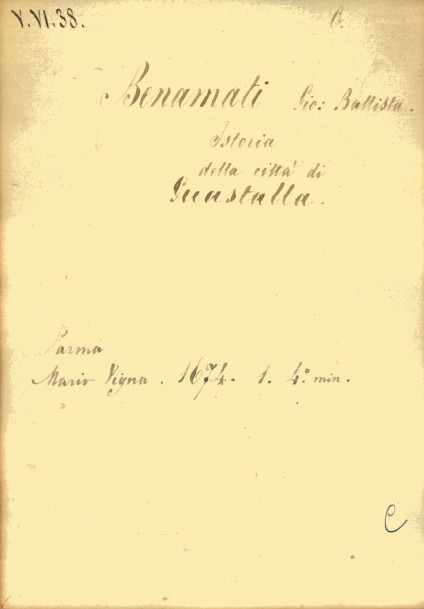 V.VI.38. C.
Benamati Gio: Battista.
Istoria
della città di
Guastalla.
Parma
Mario Vigna. 1674. 1. 4.° min.
C